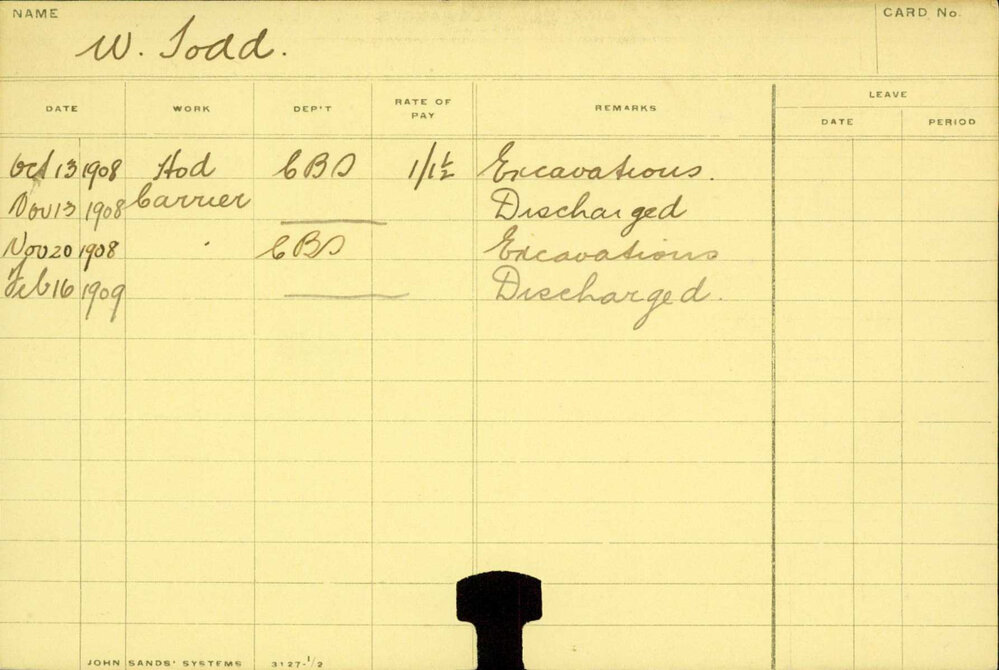 NAME
CARD No.
W. Todd.
DATE WORK DEP'T RATE OF PAY REMARKS LEAVE
DATE PERIOD
Oct 13 1908 Hod CBS 1/1½ Excavations.
Nov 13 1908 Carrier Discharged
Nov 20 1908 CBS Excavations
Feb 16 1909 Discharged.
JOHN SANDS' SYSTEMS 3127-1/2